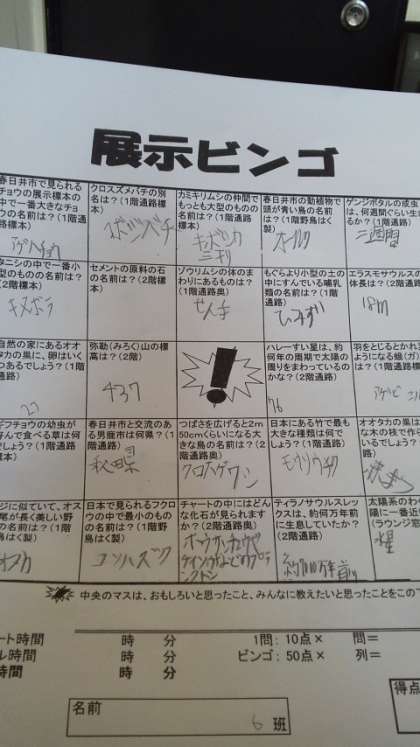 展示ビンゴ
春日井市で見られる
チョウの展示標本の
中で一番大きなチョ
ウの名前は？(1階
通路標本)
アゲハチョウ
クロスズメバチの別
名は？(1階通路標
本)
スボジバチ
カミキリムシの仲間で
もっとも大型のものの
名前は？(1階通路標
本)
春日井市の動植物で
頭が青い鳥の名前
は？(1階野鳥はく製)
オオルリ
ゲンジボタルの成虫
は、何週間ぐらい生
るか？(1階通路)
三週間
タニシの中で一番小
型のものの名前は？
(2階標本)
セメントの原料の石
の名前は？(2階標
本)
ゾウリムシの体のま
わりにあるものは？
(1階通路奥)
せんも
もぐらより小型の土の
中にすんでいる哺乳
類の名前は？(1階通
路)
ひみず
エラスモサウルスの
体長は？(2階標本)
18m
自然の家にあるオオ
タカの巣に、卵はいく
つあるでしょう？(1階
通路)
27
弥勒(みろく)山の標
高は？(2階)
437
ハレーすい星は、約
何年の周期で太陽の
周りをまわっているの
かな？(2階通路)
76
羽をとじるとかれ
ようになる蛾(ガ)
は？(1階通路)
アケビ
ギフチョウの幼虫が
好んで食べる草は何
でしょう？(1階通路
標本)
春日井市と交流のあ
る男鹿市は何県？(1
階通路)
秋田県
つばさを広げると2m
50cmくらいになる大
きな鳥の名前は？(2
階通路)
クロハゲワシ
日本にある竹で最も
大きな種類は何で
しょう？(1階通路)
モウソウチク
オオタカの巣は
な木の枝で作ら
いるでしょう？
通路)
ジに似ていて、オス
尾が長く美しい野
の名前は？(1階
鳥はく製)
日本で見られるフクロ
ウの中で最小のもの
の名前は？(1階野
鳥はく製)
コノハズク
チャートの中にはどん
な化石が見られます
か？(2階通路奥)
ティラノサウルスレッ
クスは、約何万年前
に生息していたか？
(2階通路)
太陽系のわ
陽に一番近
(ラウンジ窓
水星
中央のマスは、おもしろいと思ったこと、みんなに教えたいと思ったことをこの
ート時間　時　分　1問：10点×　問＝
ル時間　時　分　ビンゴ：50点×　列＝
時間　時　分
得点
名前
6 班